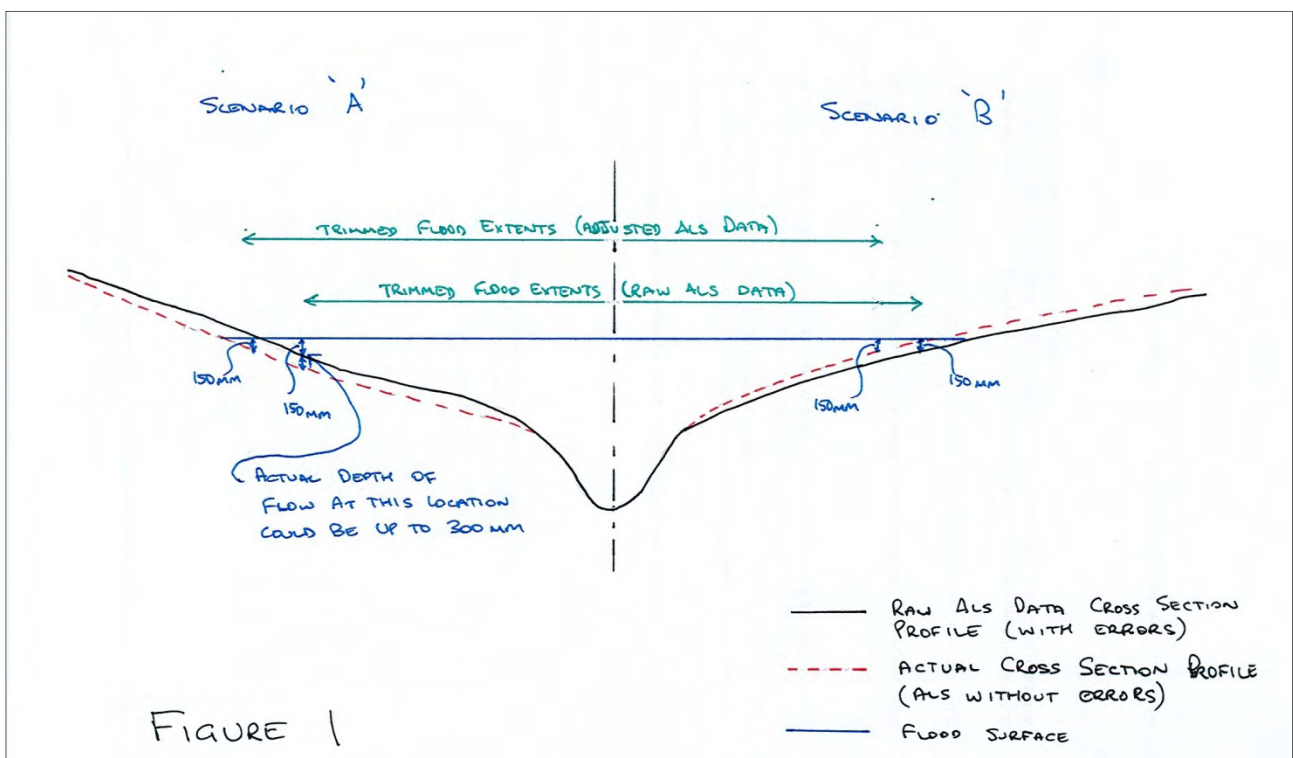 SCENARIO 'A'
SCENARIO 'B'
TRIMMED FLOOD EXTENTS (ADJUSTED ALS DATA)
TRIMMED FLOOD EXTENTS (RAW ALS DATA)
150MM
150MM
150MM
150MM
ACTUAL DEPTH OF
FLOW AT THIS LOCATION
COULD BE UP TO 300MM
RAW ALS DATA CROSS SECTION
PROFILE (WITH ERRORS)
ACTUAL CROSS SECTION PROFILE
(ALS WITHOUT ERRORS)
FLOOD SURFACE
FIGURE 1